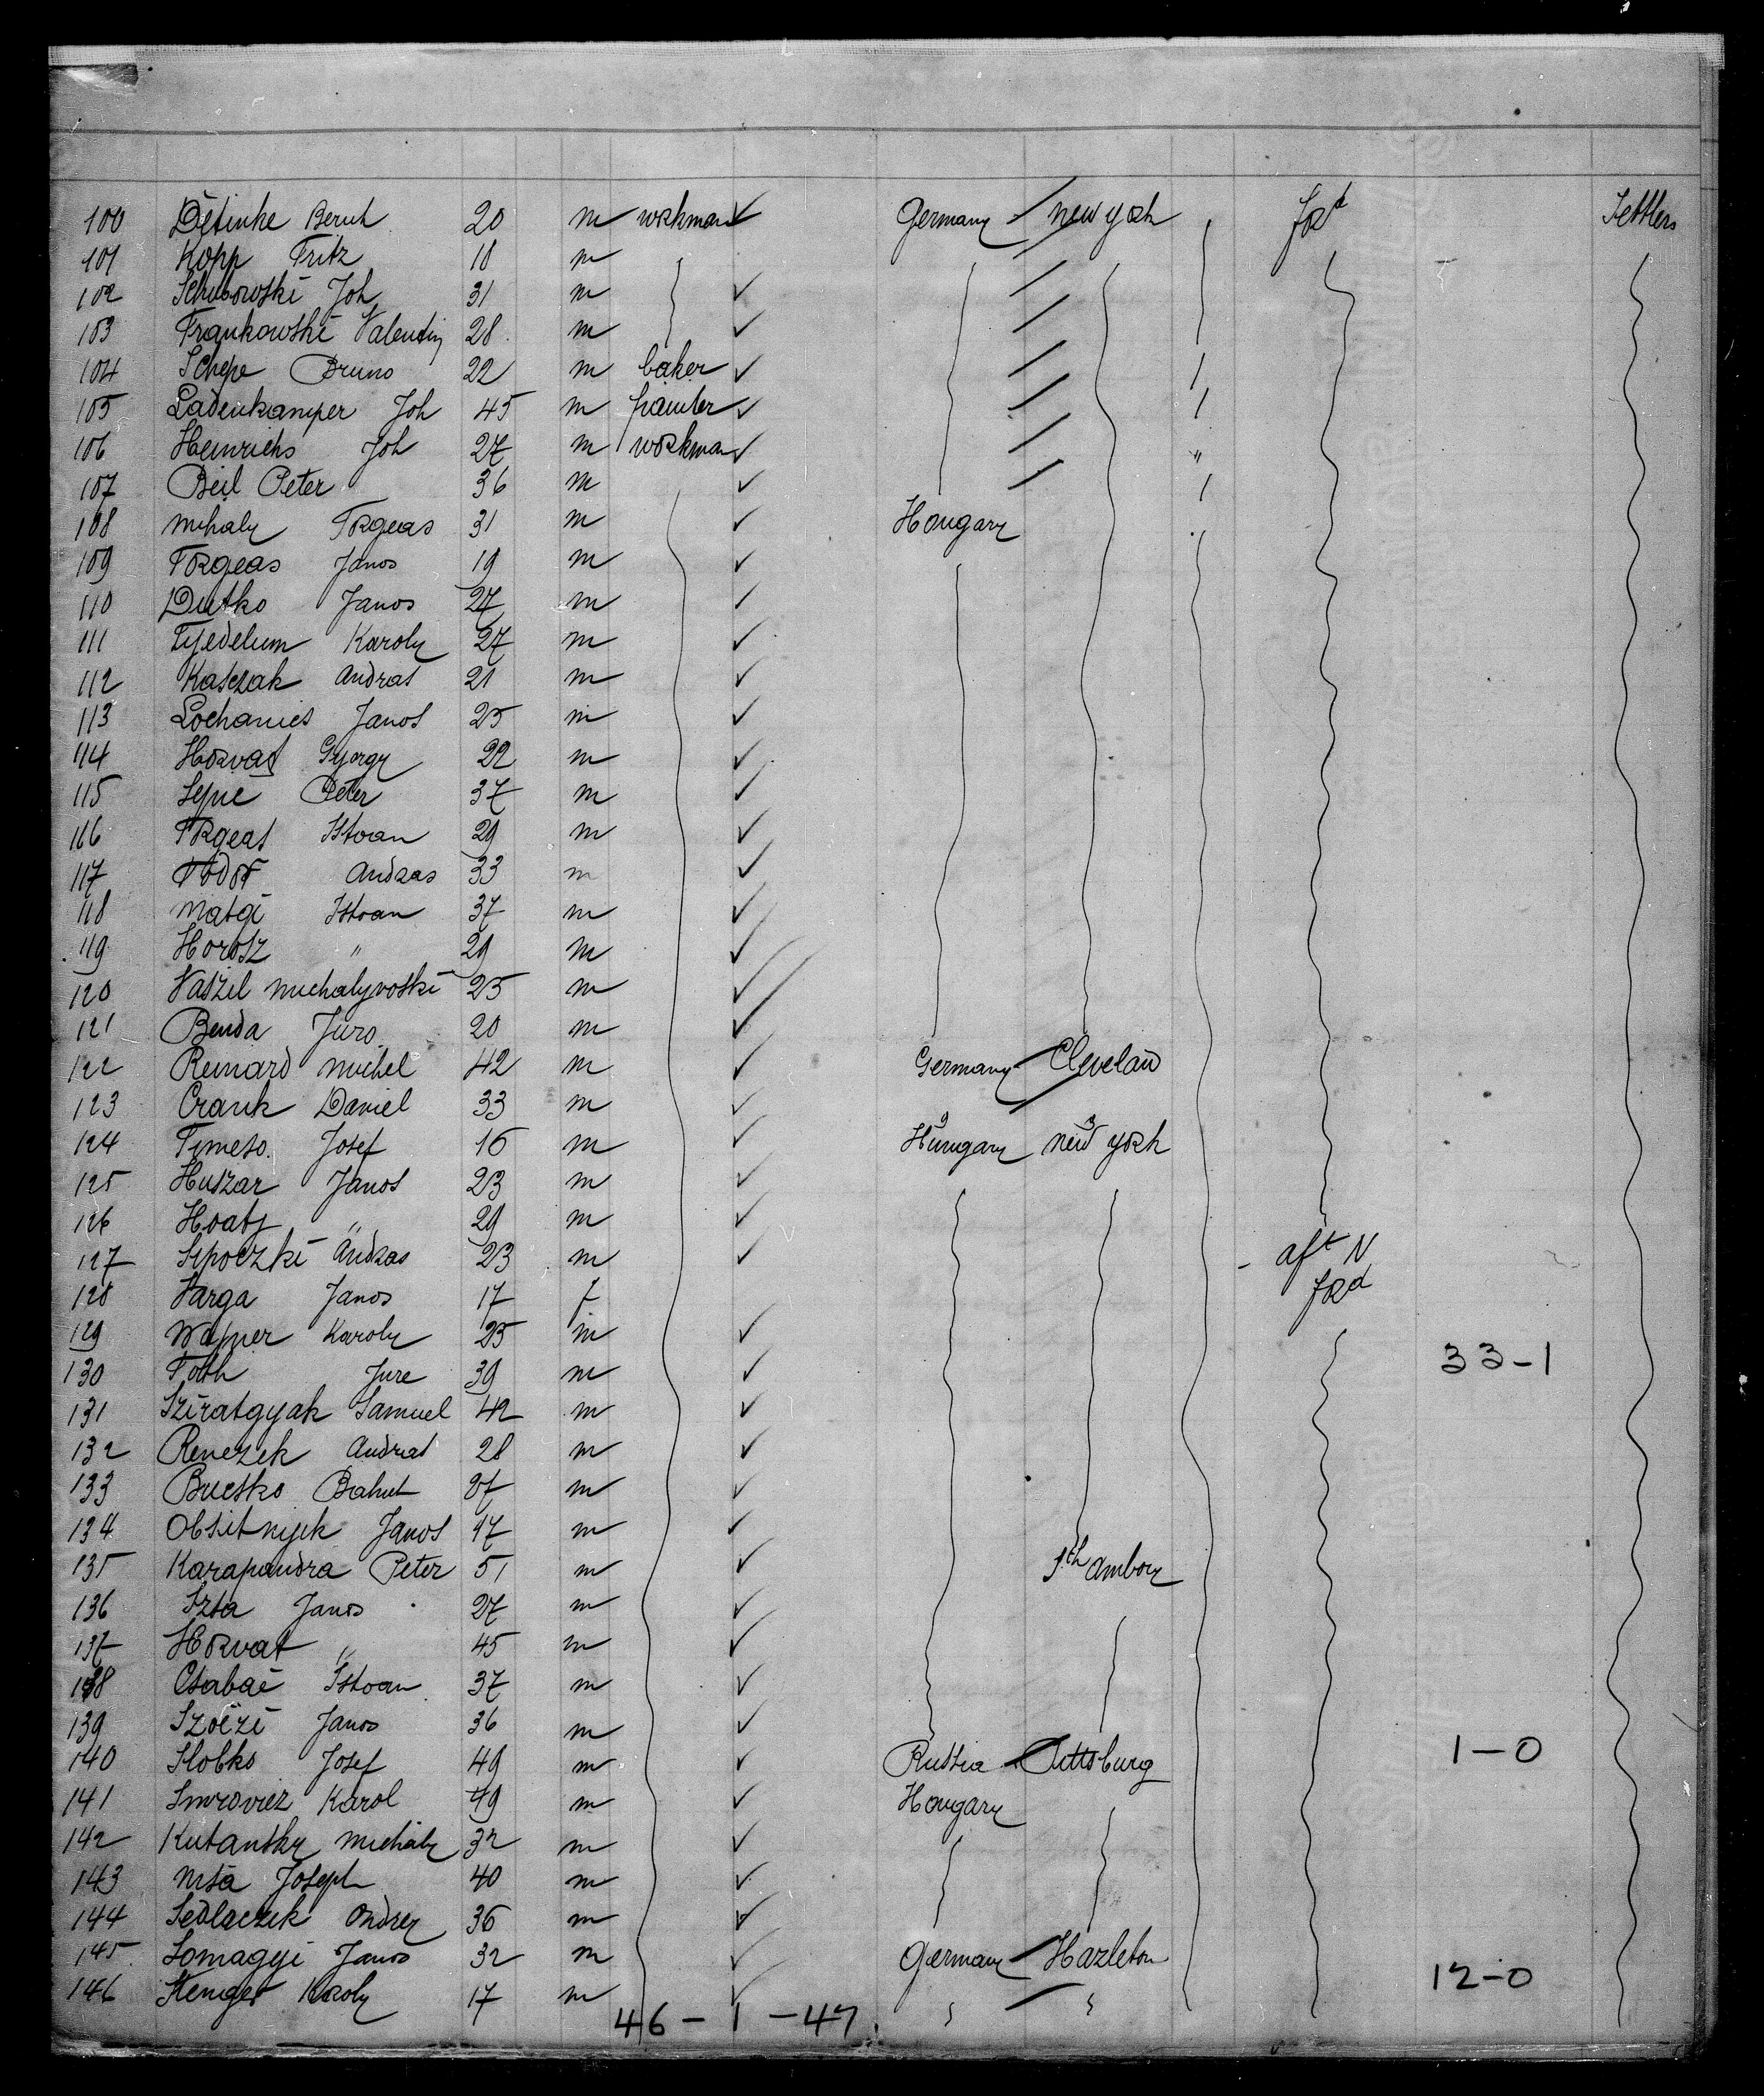 100 Detinke Bernh 20 m workman Germany new york ford Settlers
101 Kopp Fritz 18 m
102 Schibowski Joh 31 m
103 Frankowski Valentin 28 m
104 Schepe Bruno 22 m baker
105 Ladenkamper Joh 45 m painter
106 Heinrichs Joh 27 m workman "
107 Beil Peter 36 m
108 Mihaly Forgeas 31 m Hongary
109 Forgeas Janos 19 m
110 Dutko Janos 27 m
111 Karoly 27 m
112 Kasczak Andras 21 m
113 Lochanics Janos 25 m
114 Horvat Gyorgy 22 m
115 Peter 37 m
116 Forgeas Istvan 29 m
117 Fodor Andras 33 m
118 Matgi Istvan 37 m
119 Horosz " 29 m
120 Vaszil Michalyvoski 25 m
121 Benda Juro 20 m
122 Reinard Michel 42 m Germany Clevelan
123 Crank Daniel 33 m
124 Timeso Josef 16 m Hungary 9 new york 3
125 Huszar Janos 23 m
126 Hoaty " 29 m
127 Sipoczki Andras 23 m aft N
128 Varga Janos 17 f ford
129 Wajner Karoly 25 m
130 Toth Jure 39 m 33-1
131 Sziratgyak Samuel 42 m
132 Renczek Andras 28 m
133 Bucsko 27 m
134 Obsitnyek Janos 47 m
135 Karapandra Peter 51 m Amboy
136 Szta Janos 27 m
137 Horvat " 45 m
138 Csabai Istvan 37 m
139 Szöczi Janos 36 m
140 Slobko Josef 49 m Russia Pittsburg 1-0
141 Karol 49 m Hongary
142 Kutansky Michaly 32 m
143 Misa Joseph 40 m
144 Sedlaczek Ondrey 36 m
145 Somagyi Janos 32 m Germany Hazleton
146 Stenger Karoly 17 m " " 12-0
46-1-47.